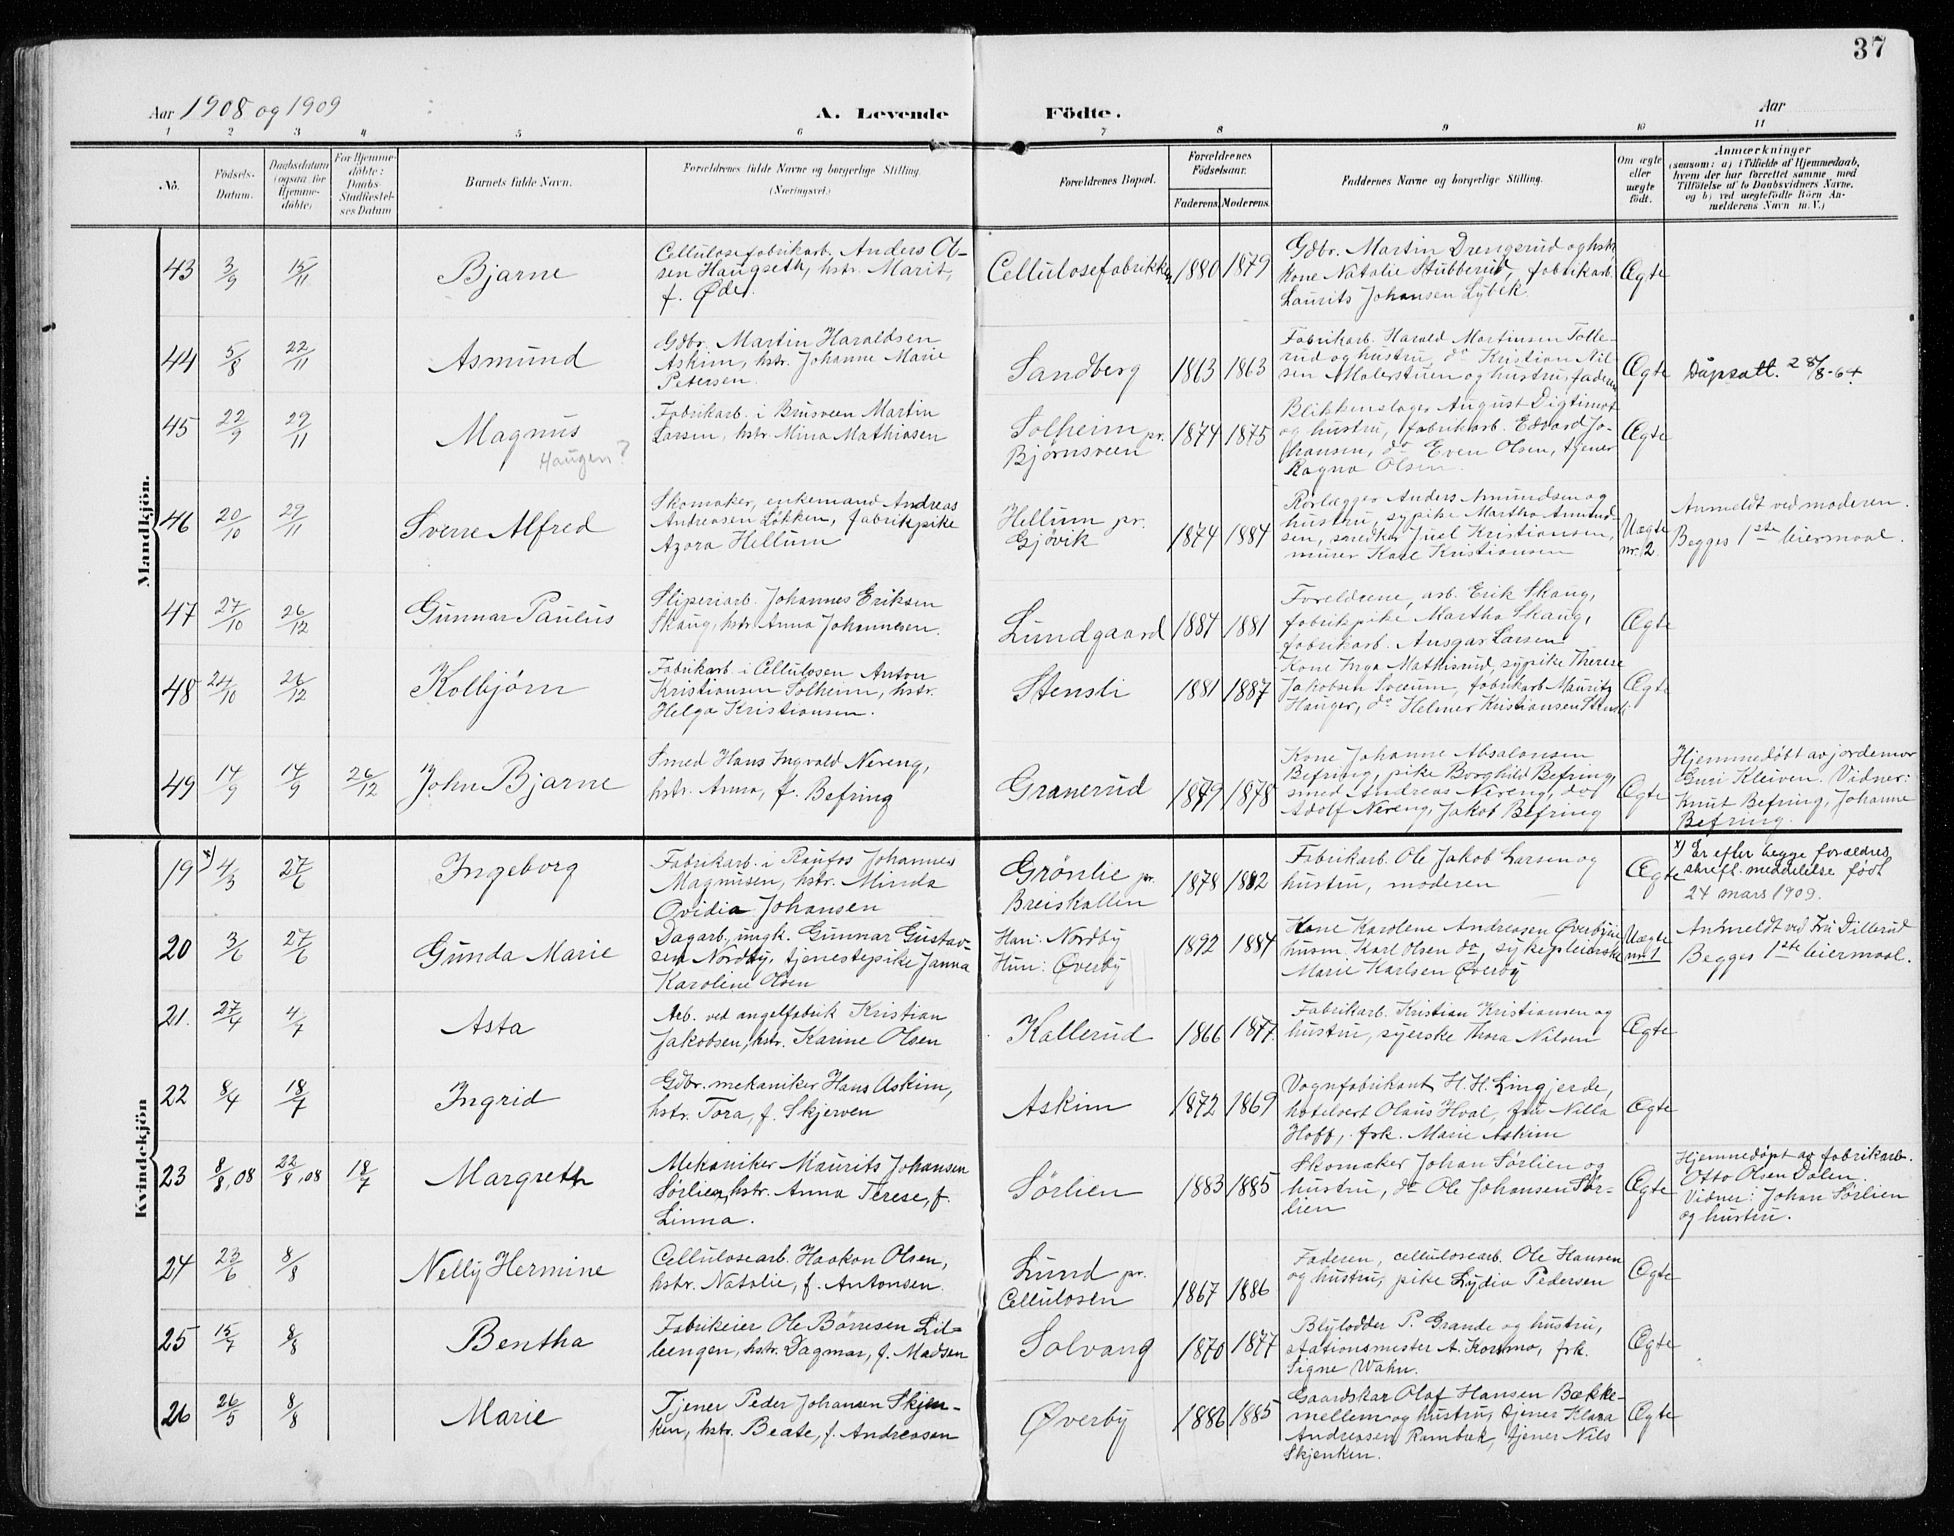 37
Aar 1908 og 1909
A. Levende Födte.
Aar
1 2 3 4 5 6 7 8 9 10 11
No.
Födsels-
Datum.
Daabsdatum
(ogsaa for
Hjemme-
döbte)
For Hjemme-
döbte:
Daabs-
Stadfæstel-
ses Datum
Barnets fulde Navn.
Forældrenes fulde Navne og borgerlige Stilling.
(Næringsvei.)
Forældrenes Bopæl.
Forældrenes
Födselsaar.
Faderens. Moderens.
Faddernes Navne og borgerlige Stilling.
Om ægte
eller
uægte
födt.
Anmærkninger
(saasom: a) i Tilfælde af Hjemmedaab,
hvem der har forrettet samme, med
Tilföielse af to Daabsvidners Navne,
og b) ved uægtefödte Börn An-
melderens Navn m. V.)
Mandkjön.
43 3/9 15/11
Bjarne
Cellulosefabrikarb. Anders Ol-
sen Haugseth, hstr. Marit,
f. Ødel.
Cellulosefabrikken
1880 1879
Gdbr. Martin Drengsrud og hstr.
kone Natalie Stubberud, fabrikarb.
Laurits Johansen Lybek.
Ægte
44 5/8 22/11
Asmund
Gdbr. Martin Haraldsen
Askim, hstr. Johanne Marie
Petersen.
Sandberg
1863 1863
Fabrikarb. Harald Martinsen Tolle-
rud og hustru, do Kristian Nil-
sen Malerstuen og hustru, faderen
Ægte
Dåpsatt. 28/8-64
45 22/9 29/11
Magnus
Haugen?
Fabrikarb. i Brusveen Martin
Larsen, hstr. Mina Mathiasen
Solheim pr.
Bjørnsveen
1874 1875
Blikkenslager August Digtimot
og hustru, fabrikarb. Edvard Jo-
hansen, do Even Olsen, tjener
Ragna Olsen.
Ægte
46 20/10 29/11
Sverre Alfred
Skomaker, enkemand Andreas
Andreasen Løkken, fabrikpike
Azora Hellum
Hellum pr.
Gjøvik
1874 1884
Rørlægger Anders Amundsen og
hustru, sypike Martha Amund-
sen, snedker Juel Kristiansen,
murer Karl Kristiansen
Uægte
nr. 2.
Anmeldt ved moderen.
Begges 1ste leiermaal.
47 27/10 26/12
Gunnar Paulus
Sliperiarb. Johannes Eriksen
Skaug, hstr. Anna Johannesen.
Lundgaard
1884 1881
Foreldrene, arb. Erik Skaug,
fabrikpike Martha Skaug,
fabrikarb. Ansgar Larsen
Ægte
48 24/10 26/12
Kolbjørn
Fabrikarb. i Cellulosen Anton
Kristiansen Solheim, hstr.
Helga Kristiansen.
Stensli
1881 1887
Kone Inga Mathisrud, sypike Therese
Jakobsen, fabrikarb Mauritz
Hanger, do Helmer Kristiansen Stensli
Ægte
49 14/9 14/9 26/12
John Bjarne
Smed Hans Ingvald Nereng,
hstr. Anna, f. Befring
Granerud
1879 1878
Kone Johanne Absalonsen
Befring, pike Borghild Befring,
smed Andreas Nereng, do
Adolf Nereng, Jakob Befring
Ægte
Hjemmedøbt av jordemor
Guri Kleiven. Vidner:
Knut Befring, Johanne
Befring.
Kvindekjön
19 x) 4/3 27/6
Ingeborg
Fabrikarb. i Raufos Johannes
Magnusen, hstr. Minda
Ovidia Johansen
Grønlie pr.
Breiskallen
1878 1882
Fabrikarb. Ole Jakob Larsen og
hustru, moderen
Ægte
x) Er efter begge forældres
skriftl. meddelelse født
24 mars 1909.
20 3/6 27/6
Gunda Marie
Dagarb., ungk. Gunnar Gustav-
sen Nordby, tjenestepike Janna
Karoline Olsen
Han: Nordby
Hun: Øverby
1892 1884
Kone Karolene Andreasen Øverby
husm. Karl Olsen do, sykepleierske
Marie Karlsen Øverby
Uægte
nr. 1
Anmeldt ved Fru Dillerud
Begges 1ste leiermaal.
21. 27/4 4/7
Asta
Arb. ved angelfabrik Kristian
Jakobsen, hstr. Karine Olsen
Kallerud
1866 1877.
Fabrikarb. Kristian Kristiansen og
hustru, syerske Thora Nilsen
Ægte
22 8/4 18/7
Ingrid
Gdbr. mekaniker Hans Askim,
hstr. Tora, f. Skjerven
Askim
1872 1869
Vognfabrikant H. H. Lingjerde,
hotelvert Olaus Hval, fru Nilla
Hoff, frk. Marie Askim
Ægte
23 8/8, 08 22/8, 08 18/7
Margreth
Mekaniker Maurits Johansen
Sørlien, hstr. Anna Terese, f.
Linna.
Sørlien
1883 1885
Skomaker Johan Sørlien og
hustru, do Ole Johansen Sør-
lien
Ægte
Hjemmedøpt av fabrikarb.
Otto Olsen Dalen.
Vidner: Johan Sørlien
og hustru.
24 23/6 8/8
Nelly Hermine
Cellulosearb. Haakon Olsen,
hstr. Natalie, f. Antonsen.
Lund pr.
Cellulosen
1867 1886
Faderen, cellulosearb. Ole Hansen
og hustru, pike Lydia Pedersen
Ægte
25 15/7 8/8
Bentha
Fabrikeier Ole Børresen Lil-
leengen, hstr. Dagmar, f. Madsen
Solvang
1870 1877
Blylodder P. Grande og hustru,
stationsmester A. Korsmo, frk.
Signe Wahn.
Ægte
26 26/5 8/8
Marie
Tjener Peder Johansen Skjen-
ken, hstr. Beate, f. Andreasen
Øverby
1886 1885
Gaardskar Olaf Hansen Bække-
mellem og hustru, tjener Klara
Andreasen Rambæk, tjener Nils
Skjenken.
Ægte